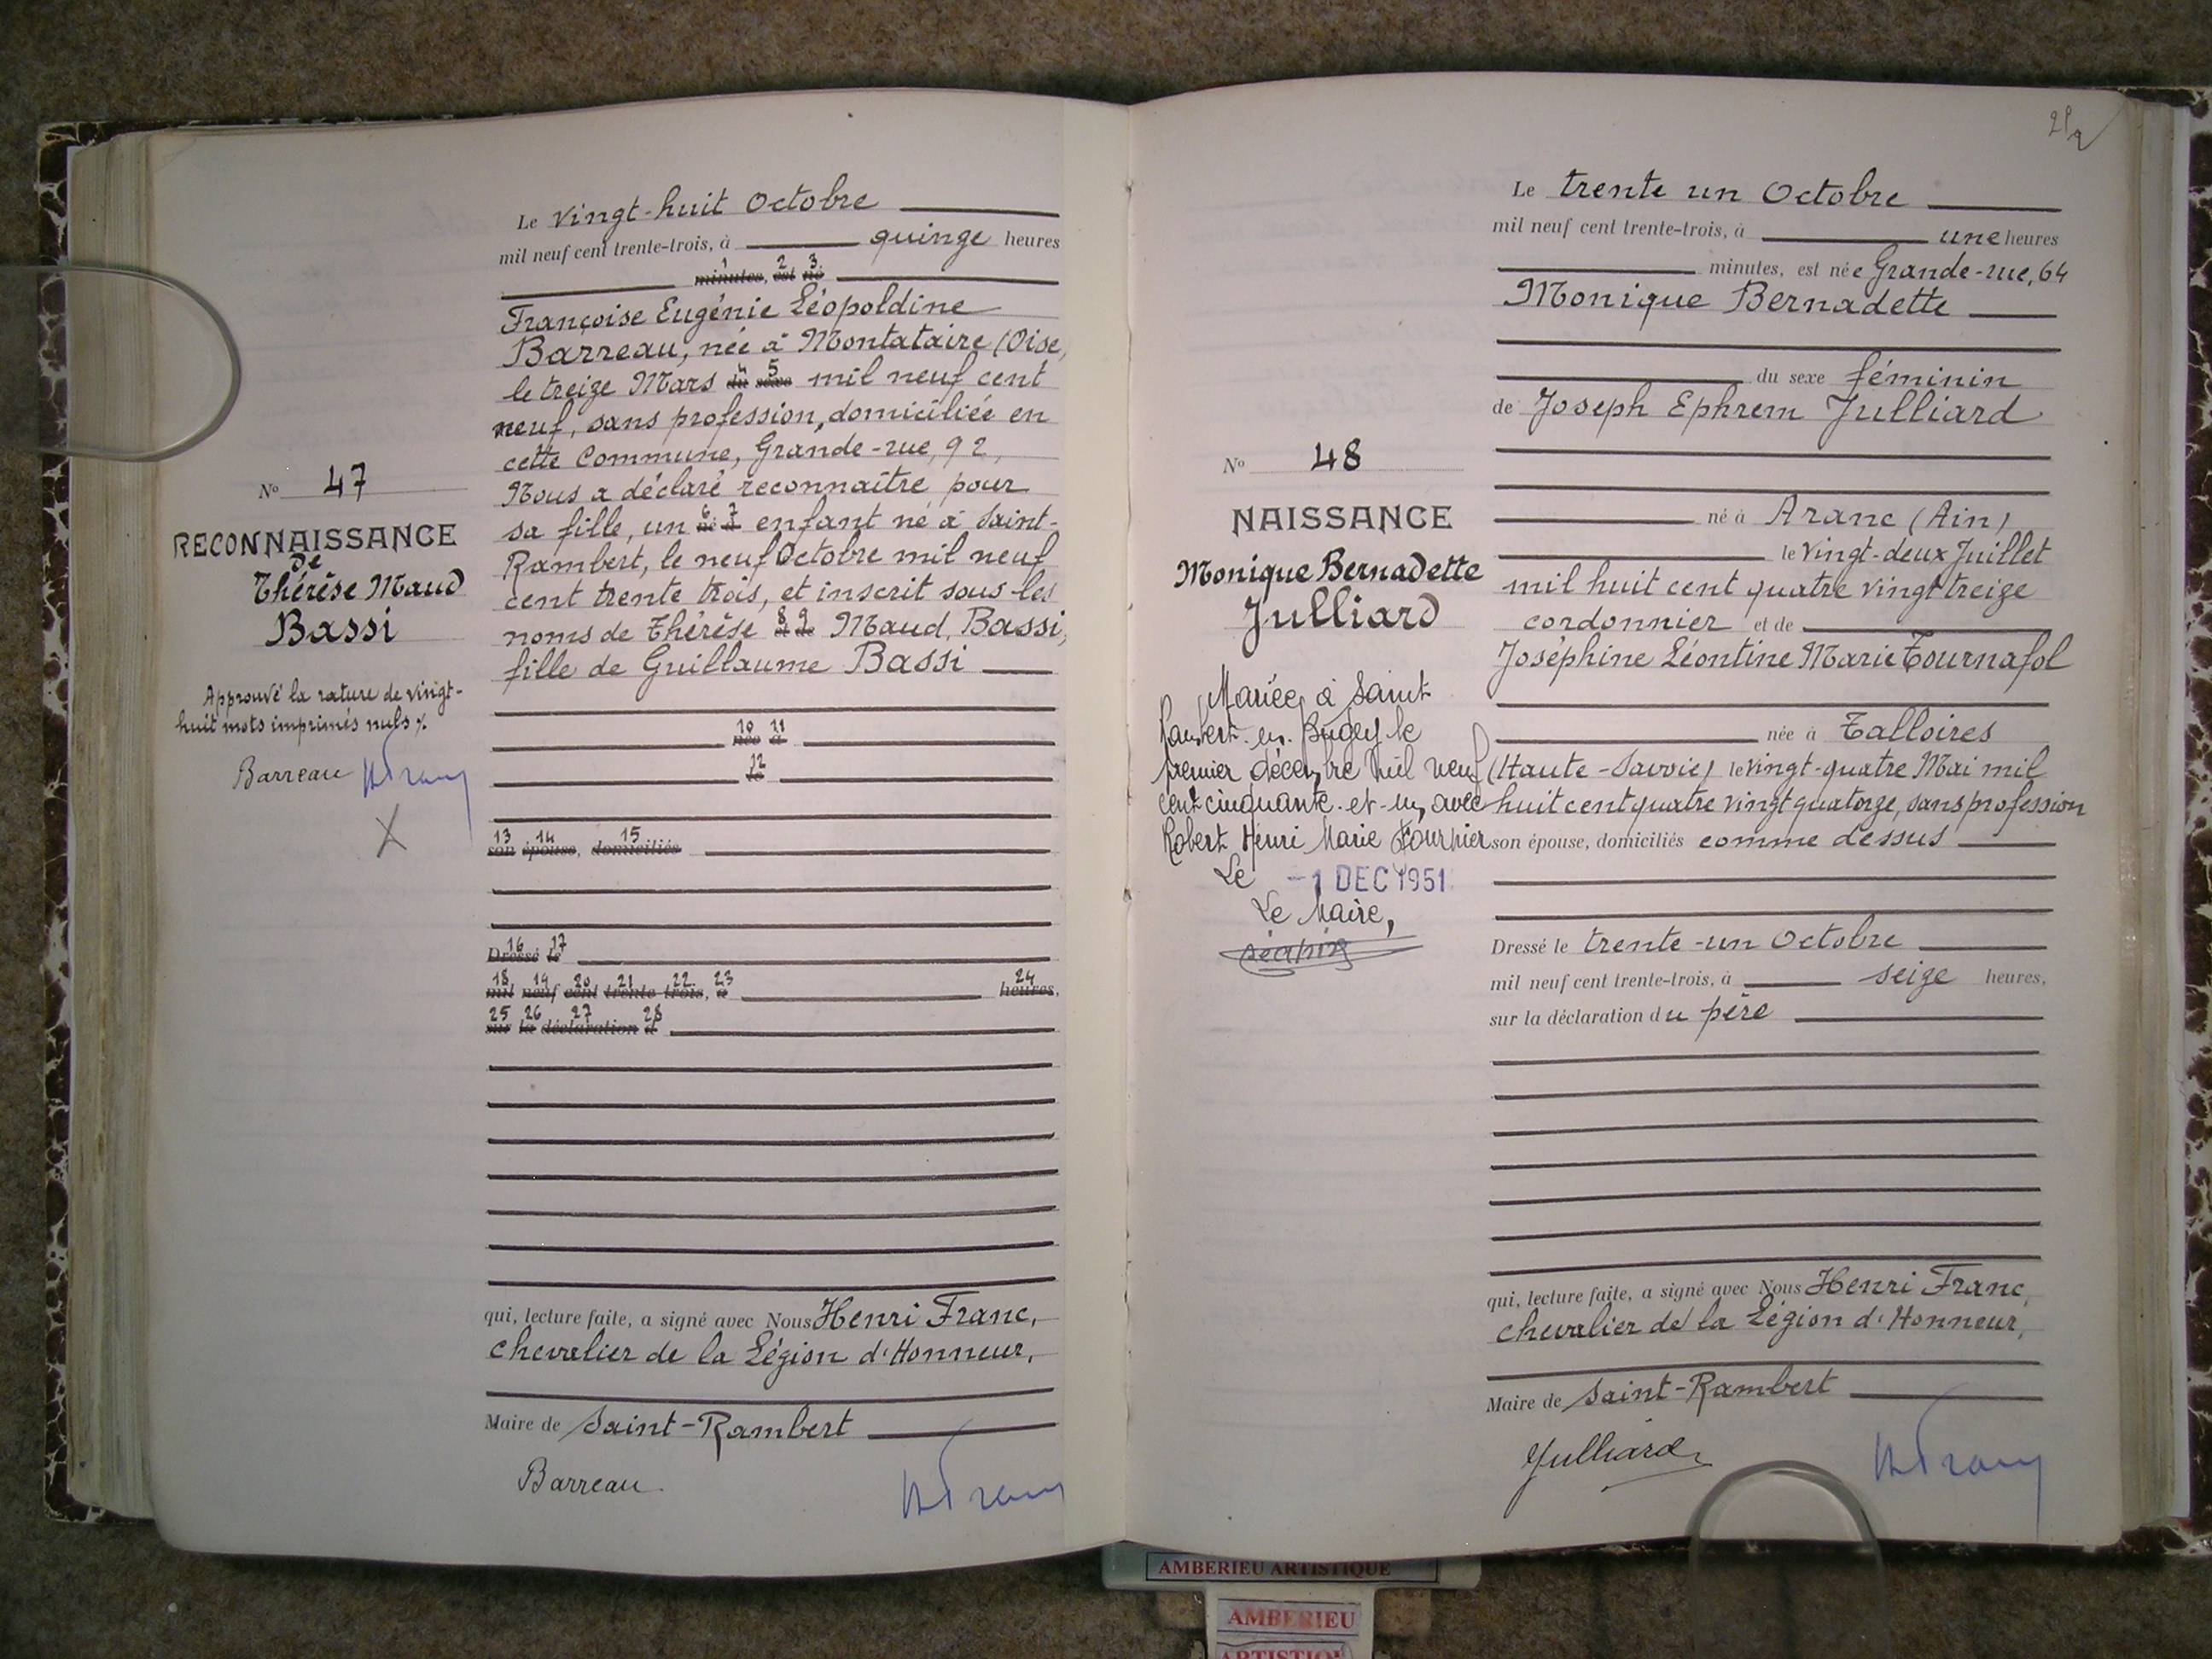 Le vingt-huit Octobre
mil neuf cent trente-trois, à quinze heures
1 2 3
minutes, est né
Françoise Eugénie Léopoldine
Barreau, née à Montataire (Oise,
le treize Mars 4 du 5 sexe mil neuf cent
neuf, sans profession, domiciliée en
cette Commune, Grande-rue, 92,
Nous a déclaré reconnaître pour
sa fille, un 6 né 7 à enfant né à Saint-
Rambert, le neuf Octobre mil neuf
cent trente trois, et inscrit sous les
noms de Thérèse 8 et 9 de Maud, Bassi,
fille de Guillaume Bassi
10 11
née à
12
le
13 14 15
son épouse, domiciliés
16 17
Dressé le
18 19 20 21 22 23 24
mil neuf cent trente-trois, à heures,
25 26 27 28
sur la déclaration d
qui, lecture faite, a signé avec Nous Henri Franc,
chevalier de la Légion d'Honneur,
Maire de Saint-Rambert
Barreau
HFranc
No 47
RECONNAISSANCE
de
Thérèse Maud
Bassi
Approuvé la rature de vingt-
huit mots imprimés nuls %.
Barreau HFranc
X
Le trente un Octobre
mil neuf cent trente-trois, à une heures
minutes, est née Grande-rue, 64
Monique Bernadette
du sexe féminin
de Joseph Ephrem Julliard
né à Aranc (Ain)
le vingt-deux Juillet
mil huit cent quatre vingt treize
cordonnier et de
Joséphine Léontine Marie Tournafol
née à Talloires
(Haute-Savoie) le vingt-quatre Mai mil
huit cent quatre vingt quatorze, sans profession
son épouse, domiciliés comme dessus
Dressé le trente-un Octobre
mil neuf cent trente-trois, à seize heures,
sur la déclaration du père
qui, lecture faite, a signé avec Nous Henri Franc,
chevalier de la Légion d'Honneur,
Maire de Saint-Rambert
Julliard
HFranc
No 48
NAISSANCE
Monique Bernadette
Julliard
Mariée à Saint
Rambert-en-Bugey le
premier décembre mil neuf
cent cinquante-et-un, avec
Robert Henri Marie Fournier
Le -1 DEC 1951
Le Maire,
AMBERIEU ARTISTIQUE
AMBERIEU